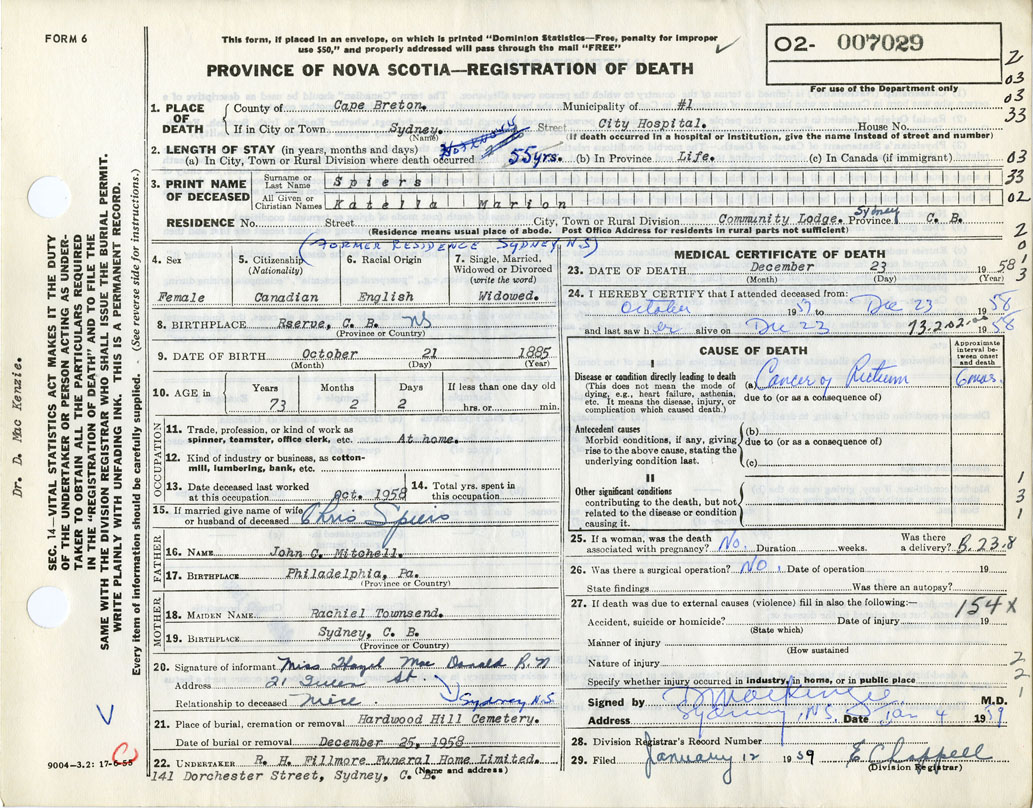 FORM 6
This form, if placed in an envelope, on which is printed "Dominion Statistics—Free, penalty for improper
use $50," and properly addressed will pass through the mail "FREE"
PROVINCE OF NOVA SCOTIA—REGISTRATION OF DEATH
02- 007029
For use of the Department only
2
03
03
33
1. PLACE OF DEATH
County of Cape Breton. Municipality of #1
If in City or Town Sydney. Street City Hospital. House No.
(Name) (If death occurred in a hospital or institution, give the name instead of street and number)
2. LENGTH OF STAY (in years, months and days)
(a) In City, Town or Rural Division where death occurred 55 yrs. (b) In Province Life. (c) In Canada (if immigrant) 03
3. PRINT NAME OF DECEASED
Surname or Last Name Spiers 33
All Given or Christian Names Katella Marion 02
RESIDENCE No. Street City, Town or Rural Division Community Lodge. Sydney Province C. B.
(Residence means usual place of abode. Post Office Address for residents in rural parts not sufficient)
(FORMER RESIDENCE SYDNEY N.S)
4. Sex
Female
5. Citizenship
(Nationality)
Canadian
6. Racial Origin
English
7. Single, Married, Widowed or Divorced
(write the word)
Widowed.
8. BIRTHPLACE Rserve, C. B. NS
(Province or Country)
9. DATE OF BIRTH October 21 1885
(Month) (Day) (Year)
10. AGE in
Years Months Days If less than one day old
73 2 2 hrs. or min.
OCCUPATION
11. Trade, profession, or kind of work as
spinner, teamster, office clerk, etc. At home.
12. Kind of industry or business, as cotton-
mill, lumbering, bank, etc.
13. Date deceased last worked
at this occupation Oct. 1958
14. Total yrs. spent in
this occupation
15. If married give name of wife
or husband of deceased Chris Spiers
FATHER
16. NAME John C. Mitchell.
17. BIRTHPLACE Philadelphia, Pa.
(Province or Country)
MOTHER
18. MAIDEN NAME Rachiel Townsend.
19. BIRTHPLACE Sydney, C. B.
(Province or Country)
20. Signature of informant Miss Hazel Mac Donald R. N
Address 21 Queen St.
Relationship to deceased niece. Sydney N.S.
21. Place of burial, cremation or removal Hardwood Hill Cemetery.
Date of burial or removal December 25, 1958
22. UNDERTAKER R. H. Fillmore Funeral Home Limited.
141 Dorchester Street, Sydney, C. B.
(Name and address)
MEDICAL CERTIFICATE OF DEATH
23. DATE OF DEATH December 23 1958
(Month) (Day) (Year)
24. I HEREBY CERTIFY that I attended deceased from:
October 1957 to Dec 23 1958
and last saw her alive on Dec 23 1958
13.2.02.
CAUSE OF DEATH
Approximate interval between onset and death
I
Disease or condition directly leading to death
(This does not mean the mode of
dying, e.g., heart failure, asthenia,
etc. It means the disease, injury, or
complication which caused death.)
(a) Cancer of Rectum 6 mos.
due to (or as a consequence of)
Antecedent causes
Morbid conditions, if any, giving
rise to the above cause, stating the
underlying condition last.
(b)
due to (or as a consequence of)
(c)
II
Other significant conditions
contributing to the death, but not
related to the disease or condition
causing it.
1
3
1
25. If a woman, was the death
associated with pregnancy? No. Duration weeks. Was there
a delivery? B.23.8
26. Was there a surgical operation? NO. Date of operation 19
State findings Was there an autopsy?
27. If death was due to external causes (violence) fill in also the following:— 154X
Accident, suicide or homicide? Date of injury 19
(State which)
Manner of injury
(How sustained
Nature of injury
Specify whether injury occurred in industry, in home, or in public place
2
2
1
Signed by D. MacKenzie M.D.
Address Sydney, N.S. Date Jan 4 1959
28. Division Registrar's Record Number
29. Filed January 12 1959 E Chappell
(Division Registrar)
Dr. D. Mac Kenzie.
SEC. 14—VITAL STATISTICS ACT MAKES IT THE DUTY
OF THE UNDERTAKER OR PERSON ACTING AS UNDER-
TAKER TO OBTAIN ALL THE PARTICULARS REQUIRED
IN THE "REGISTRATION OF DEATH" AND TO FILE THE
SAME WITH THE DIVISION REGISTRAR WHO SHALL ISSUE THE BURIAL PERMIT.
WRITE PLAINLY WITH UNFADING INK. THIS IS A PERMANENT RECORD.
Every item of information should be carefully supplied. (See reverse side for instructions.)
9004-3.2: 17-6-55